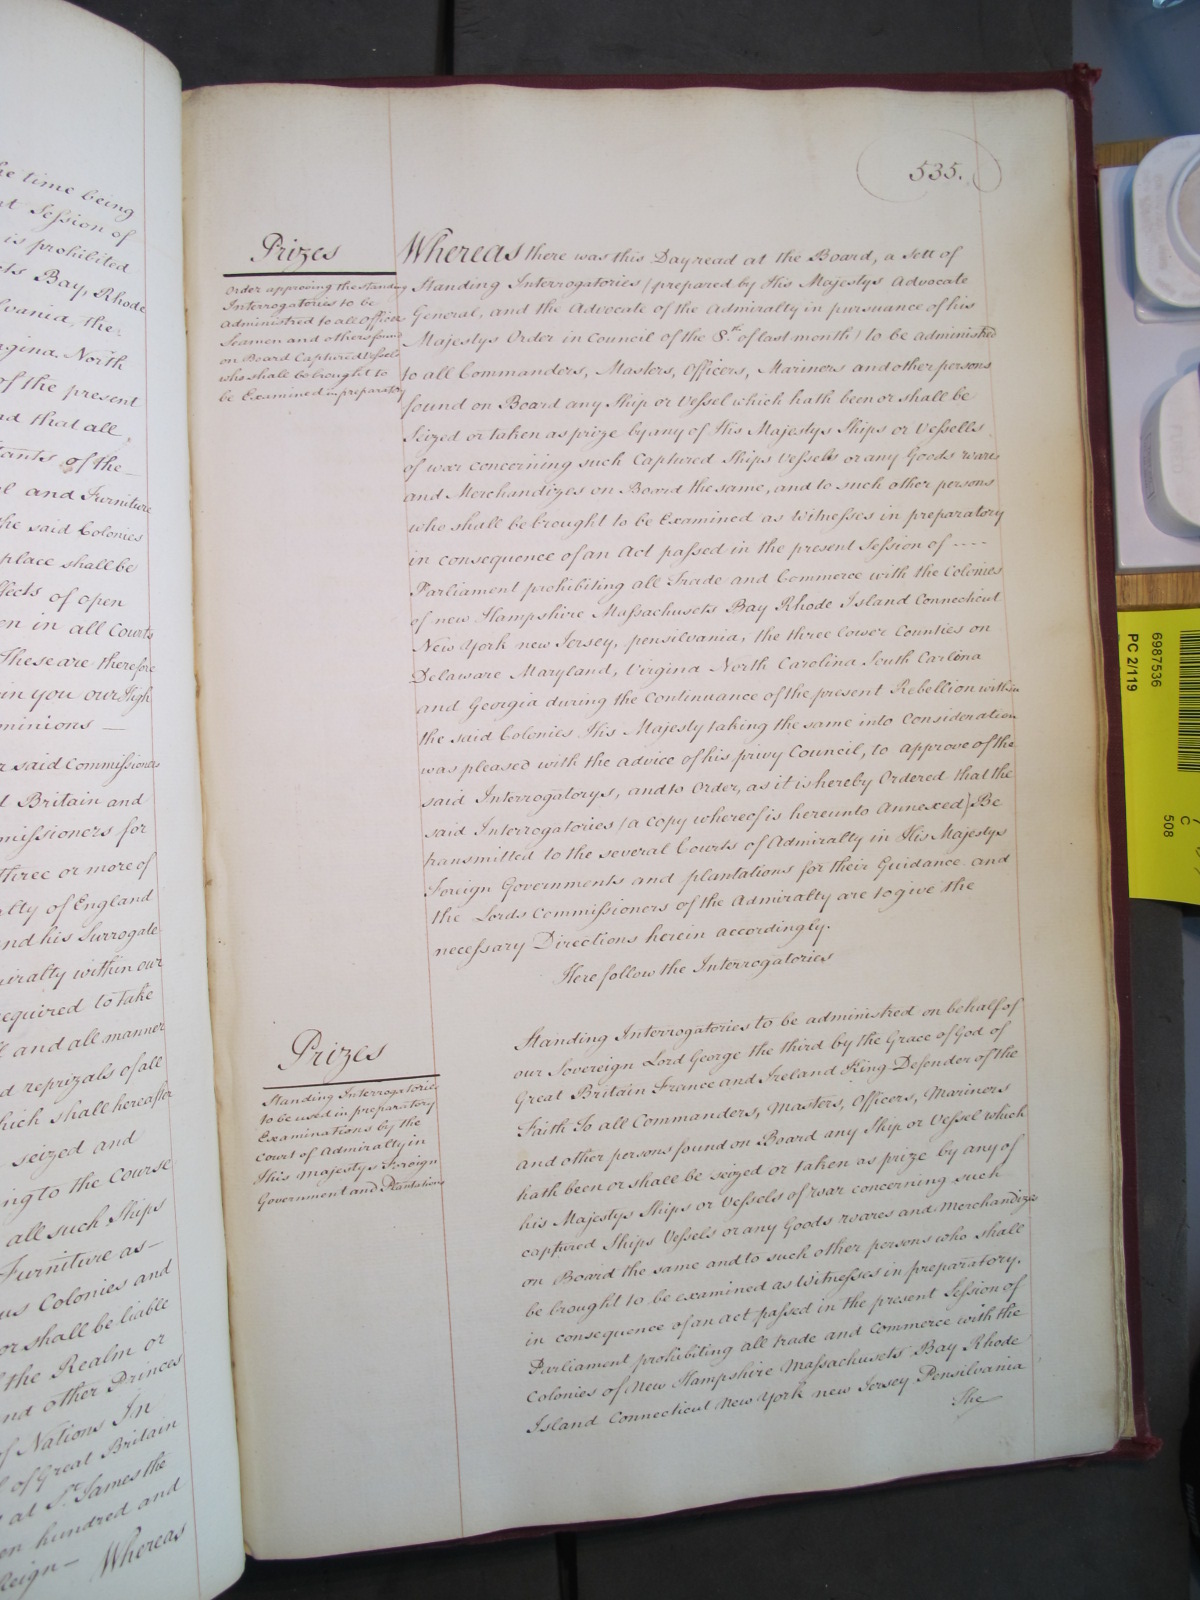 he time being
t Session of
is prohibited
ts Bay, Rhode
lvania, the
rgina, North
of the present
nd that all
tants of the
l and Furniture
he said Colonies
place shall be
ffects of open
en in all Courts
These are therefore
in you our High
minions
r said Commissioners
t Britain and
missioners for
three or more of
alty of England
and his Surrogate
miralty within our
equired to take
and all manner
d reprizals of all
hich shall hereafter
seized and
ing to the Course
all such Ships
Furniture as
us Colonies and
or shall be liable
the Realm or
nd other Princes
of Nations In
of Great Britain
at St. James the
en hundred and
Reign — Whereas
535.
Prizes
Order approving the standing
Interrogatories to be
administred to all Officers
Seamen and others found
on Board Captured Vessels
who shall be brought to
be Examined in preparatory
Whereas there was this Day read at the Board, a sett of
Standing Interrogatories (prepared by His Majestys Advocate
General, and the Advocate of the Admiralty in pursuance of his
Majestys Order in Council of the 8th of last month) to be administred
to all Commanders, Masters, Officers, Mariners and other persons
found on Board any Ship or Vessel which hath been or shall be
Seized or taken as prize by any of His Majestys Ships or Vessells
of war concerning such Captured Ships Vessels or any Goods wares
and Merchandizes on Board the same, and to such other persons
who shall be brought to be Examined as Witnesses in preparatory
in consequence of an Act passed in the present Session of ----
Parliament prohibiting all Trade and Commerce with the Colonies
of new Hampshire Massachusets Bay Rhode Island Connecticut
New York new Jersey, pensilvania, the three lower Counties on
Delaware Maryland, Virgina North Carolina South Carlina
and Georgia during the Continuance of the present Rebellion within
the said Colonies His Majesty taking the same into Consideration
was pleased with the advice of his privy Council, to approve of the
said Interrogatorys, and to Order, as it is hereby Ordered that the
said Interrogatories (a Copy whereof is hereunto Annexed) Be
transmitted to the several Courts of Admiralty in His Majestys
Foreign Governments and plantations for their Guidance and
the Lords Commissioners of the Admiralty are to give the
necessary Directions herein accordingly.
Here follow the Interrogatories
Prizes
Standing Interrogatories
to be used in preparatory
Examinations by the
Court of Admiralty in
His Majestys Foreign
Government and Plantations
Standing Interrogatories to be administred on behalf of
our Sovereign Lord George the third by the Grace of God of
Great Britain France and Ireland King Defender of the
Faith To all Commanders, Masters, Officers, Mariners
and other persons found on Board any Ship or Vessel which
hath been or shall be seized or taken as prize by any of
his Majestys Ships or Vessels of war concerning such
captured Ships Vessels or any Goods wares and Merchandize
on Board the same and to such other persons who shall
be brought to be examined as Witnesses in preparatory.
in consequence of an act passed in the present Session of
Parliament prohibiting all trade and Commerce with the
Colonies of New Hampshire Massachusets Bay Rhode
Island Connecticut New York new Jersey Pensilvania
The
6987536
PC 2/119
C
508